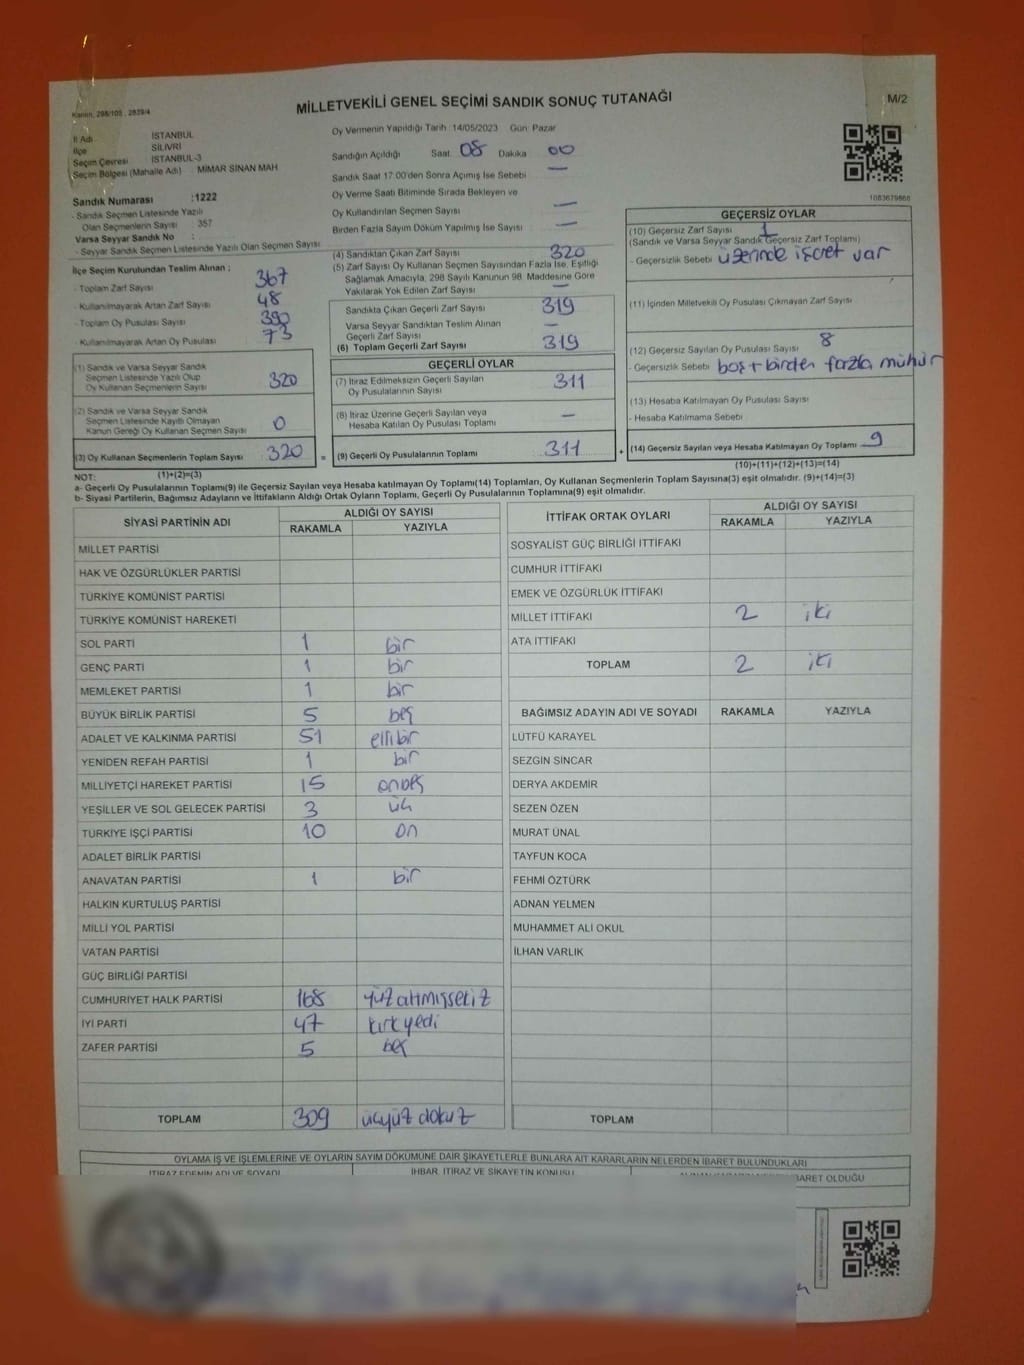 MİLLETVEKİLİ GENEL SEÇİMİ SANDIK SONUÇ TUTANAĞI
M/2
Kanun, 298/105 , 2839/4
İl Adı İSTANBUL
İlçe SİLİVRİ
Seçim Çevresi : İSTANBUL-3
Seçim Bölgesi (Mahalle Adı) : MİMAR SİNAN MAH
Sandık Numarası :1222
- Sandık Seçmen Listesinde Yazılı
Olan Seçmenlerin Sayısı : 357
Varsa Seyyar Sandık No :
- Seyyar Sandık Seçmen Listesinde Yazılı Olan Seçmen Sayısı
İlçe Seçim Kurulundan Teslim Alınan ;
- Toplam Zarf Sayısı 367
- Kullanılmayarak Artan Zarf Sayısı 48
- Toplam Oy Pusulası Sayısı 390
- Kullanılmayarak Artan Oy Pusulası 73
(1) Sandık ve Varsa Seyyar Sandık
Seçmen Listesinde Yazılı Olup
Oy Kullanan Seçmenlerin Sayısı 320
(2) Sandık ve Varsa Seyyar Sandık
Seçmen Listesinde Kayıtlı Olmayan
Kanun Gereği Oy Kullanan Seçmen Sayısı 0
(3) Oy Kullanan Seçmenlerin Toplam Sayısı 320
(1)+(2)=(3)
Oy Vermenin Yapıldığı Tarih :14/05/2023 Gün: Pazar
Sandığın Açıldığı Saat 08 Dakika 00
Sandık Saat 17:00'den Sonra Açımış İse Sebebi —
Oy Verme Saati Bitiminde Sırada Bekleyen ve
Oy Kullandırılan Seçmen Sayısı —
Birden Fazla Sayım Döküm Yapılmış İse Sayısı —
(4) Sandıktan Çıkan Zarf Sayısı 320
(5) Zarf Sayısı Oy Kullanan Seçmen Sayısından Fazla İse, Eşitliği
Sağlamak Amacıyla, 298 Sayılı Kanunun 98. Maddesine Göre
Yakılarak Yok Edilen Zarf Sayısı —
Sandıkta Çıkan Geçerli Zarf Sayısı 319
Varsa Seyyar Sandıktan Teslim Alınan
Geçerli Zarf Sayısı —
(6) Toplam Geçerli Zarf Sayısı 319
GEÇERLİ OYLAR
(7) İtiraz Edilmeksizin Geçerli Sayılan
Oy Pusulalarının Sayısı 311
(8) İtiraz Üzerine Geçerli Sayılan veya
Hesaba Katılan Oy Pusulası Toplamı —
= (9) Geçerli Oy Pusulalarının Toplamı 311 +
1083679868
GEÇERSİZ OYLAR
(10) Geçersiz Zarf Sayısı 1
(Sandık ve Varsa Seyyar Sandık Geçersiz Zarf Toplamı)
- Geçersizlik Sebebi üzerinde işaret var
(11) İçinden Milletvekili Oy Pusulası Çıkmayan Zarf Sayısı
(12) Geçersiz Sayılan Oy Pusulası Sayısı 8
- Geçersizlik Sebebi boş+birden fazla mühür
(13) Hesaba Katılmayan Oy Pusulası Sayısı
- Hesaba Katılmama Sebebi
(14) Geçersiz Sayılan veya Hesaba Katılmayan Oy Toplamı 9
(10)+(11)+(12)+(13)=(14)
NOT:
a- Geçerli Oy Pusulalarının Toplamı(9) ile Geçersiz Sayılan veya Hesaba katılmayan Oy Toplamı(14) Toplamları, Oy Kullanan Seçmenlerin Toplam Sayısına(3) eşit olmalıdır. (9)+(14)=(3)
b- Siyasi Partilerin, Bağımsız Adayların ve İttifakların Aldığı Ortak Oyların Toplamı, Geçerli Oy Pusulalarının Toplamına(9) eşit olmalıdır.
SİYASİ PARTİNİN ADI ALDIĞI OY SAYISI
RAKAMLA YAZIYLA
MİLLET PARTİSİ
HAK VE ÖZGÜRLÜKLER PARTİSİ
TÜRKİYE KOMÜNİST PARTİSİ
TÜRKİYE KOMÜNİST HAREKETİ
SOL PARTİ 1 bir
GENÇ PARTİ 1 bir
MEMLEKET PARTİSİ 1 bir
BÜYÜK BİRLİK PARTİSİ 5 beş
ADALET VE KALKINMA PARTİSİ 51 ellibir
YENİDEN REFAH PARTİSİ 1 bir
MİLLİYETÇİ HAREKET PARTİSİ 15 onbeş
YEŞİLLER VE SOL GELECEK PARTİSİ 3 üç
TÜRKİYE İŞÇİ PARTİSİ 10 on
ADALET BİRLİK PARTİSİ
ANAVATAN PARTİSİ 1 bir
HALKIN KURTULUŞ PARTİSİ
MİLLİ YOL PARTİSİ
VATAN PARTİSİ
GÜÇ BİRLİĞİ PARTİSİ
CUMHURİYET HALK PARTİSİ 168 yüzatmışsekiz
İYİ PARTİ 47 kırkyedi
ZAFER PARTİSİ 5 beş
TOPLAM 309 üçyüz dokuz
İTTİFAK ORTAK OYLARI ALDIĞI OY SAYISI
RAKAMLA YAZIYLA
SOSYALİST GÜÇ BİRLİĞİ İTTİFAKI
CUMHUR İTTİFAKI
EMEK VE ÖZGÜRLÜK İTTİFAKI
MİLLET İTTİFAKI 2 iki
ATA İTTİFAKI
TOPLAM 2 iki
BAĞIMSIZ ADAYIN ADI VE SOYADI RAKAMLA YAZIYLA
LÜTFÜ KARAYEL
SEZGİN SİNCAR
DERYA AKDEMİR
SEZEN ÖZEN
MURAT ÜNAL
TAYFUN KOCA
FEHMİ ÖZTÜRK
ADNAN YELMEN
MUHAMMET ALİ OKUL
İLHAN VARLIK
TOPLAM
OYLAMA İŞ VE İŞLEMLERİNE VE OYLARIN SAYIM DÖKÜMÜNE DAİR ŞİKAYETLERLE BUNLARA AİT KARARLARIN NELERDEN İBARET BULUNDUKLARI
İTİRAZ EDENİN ADI VE SOYADI İHBAR, İTİRAZ VE ŞİKAYETİN KONUSU İBARET OLDUĞU